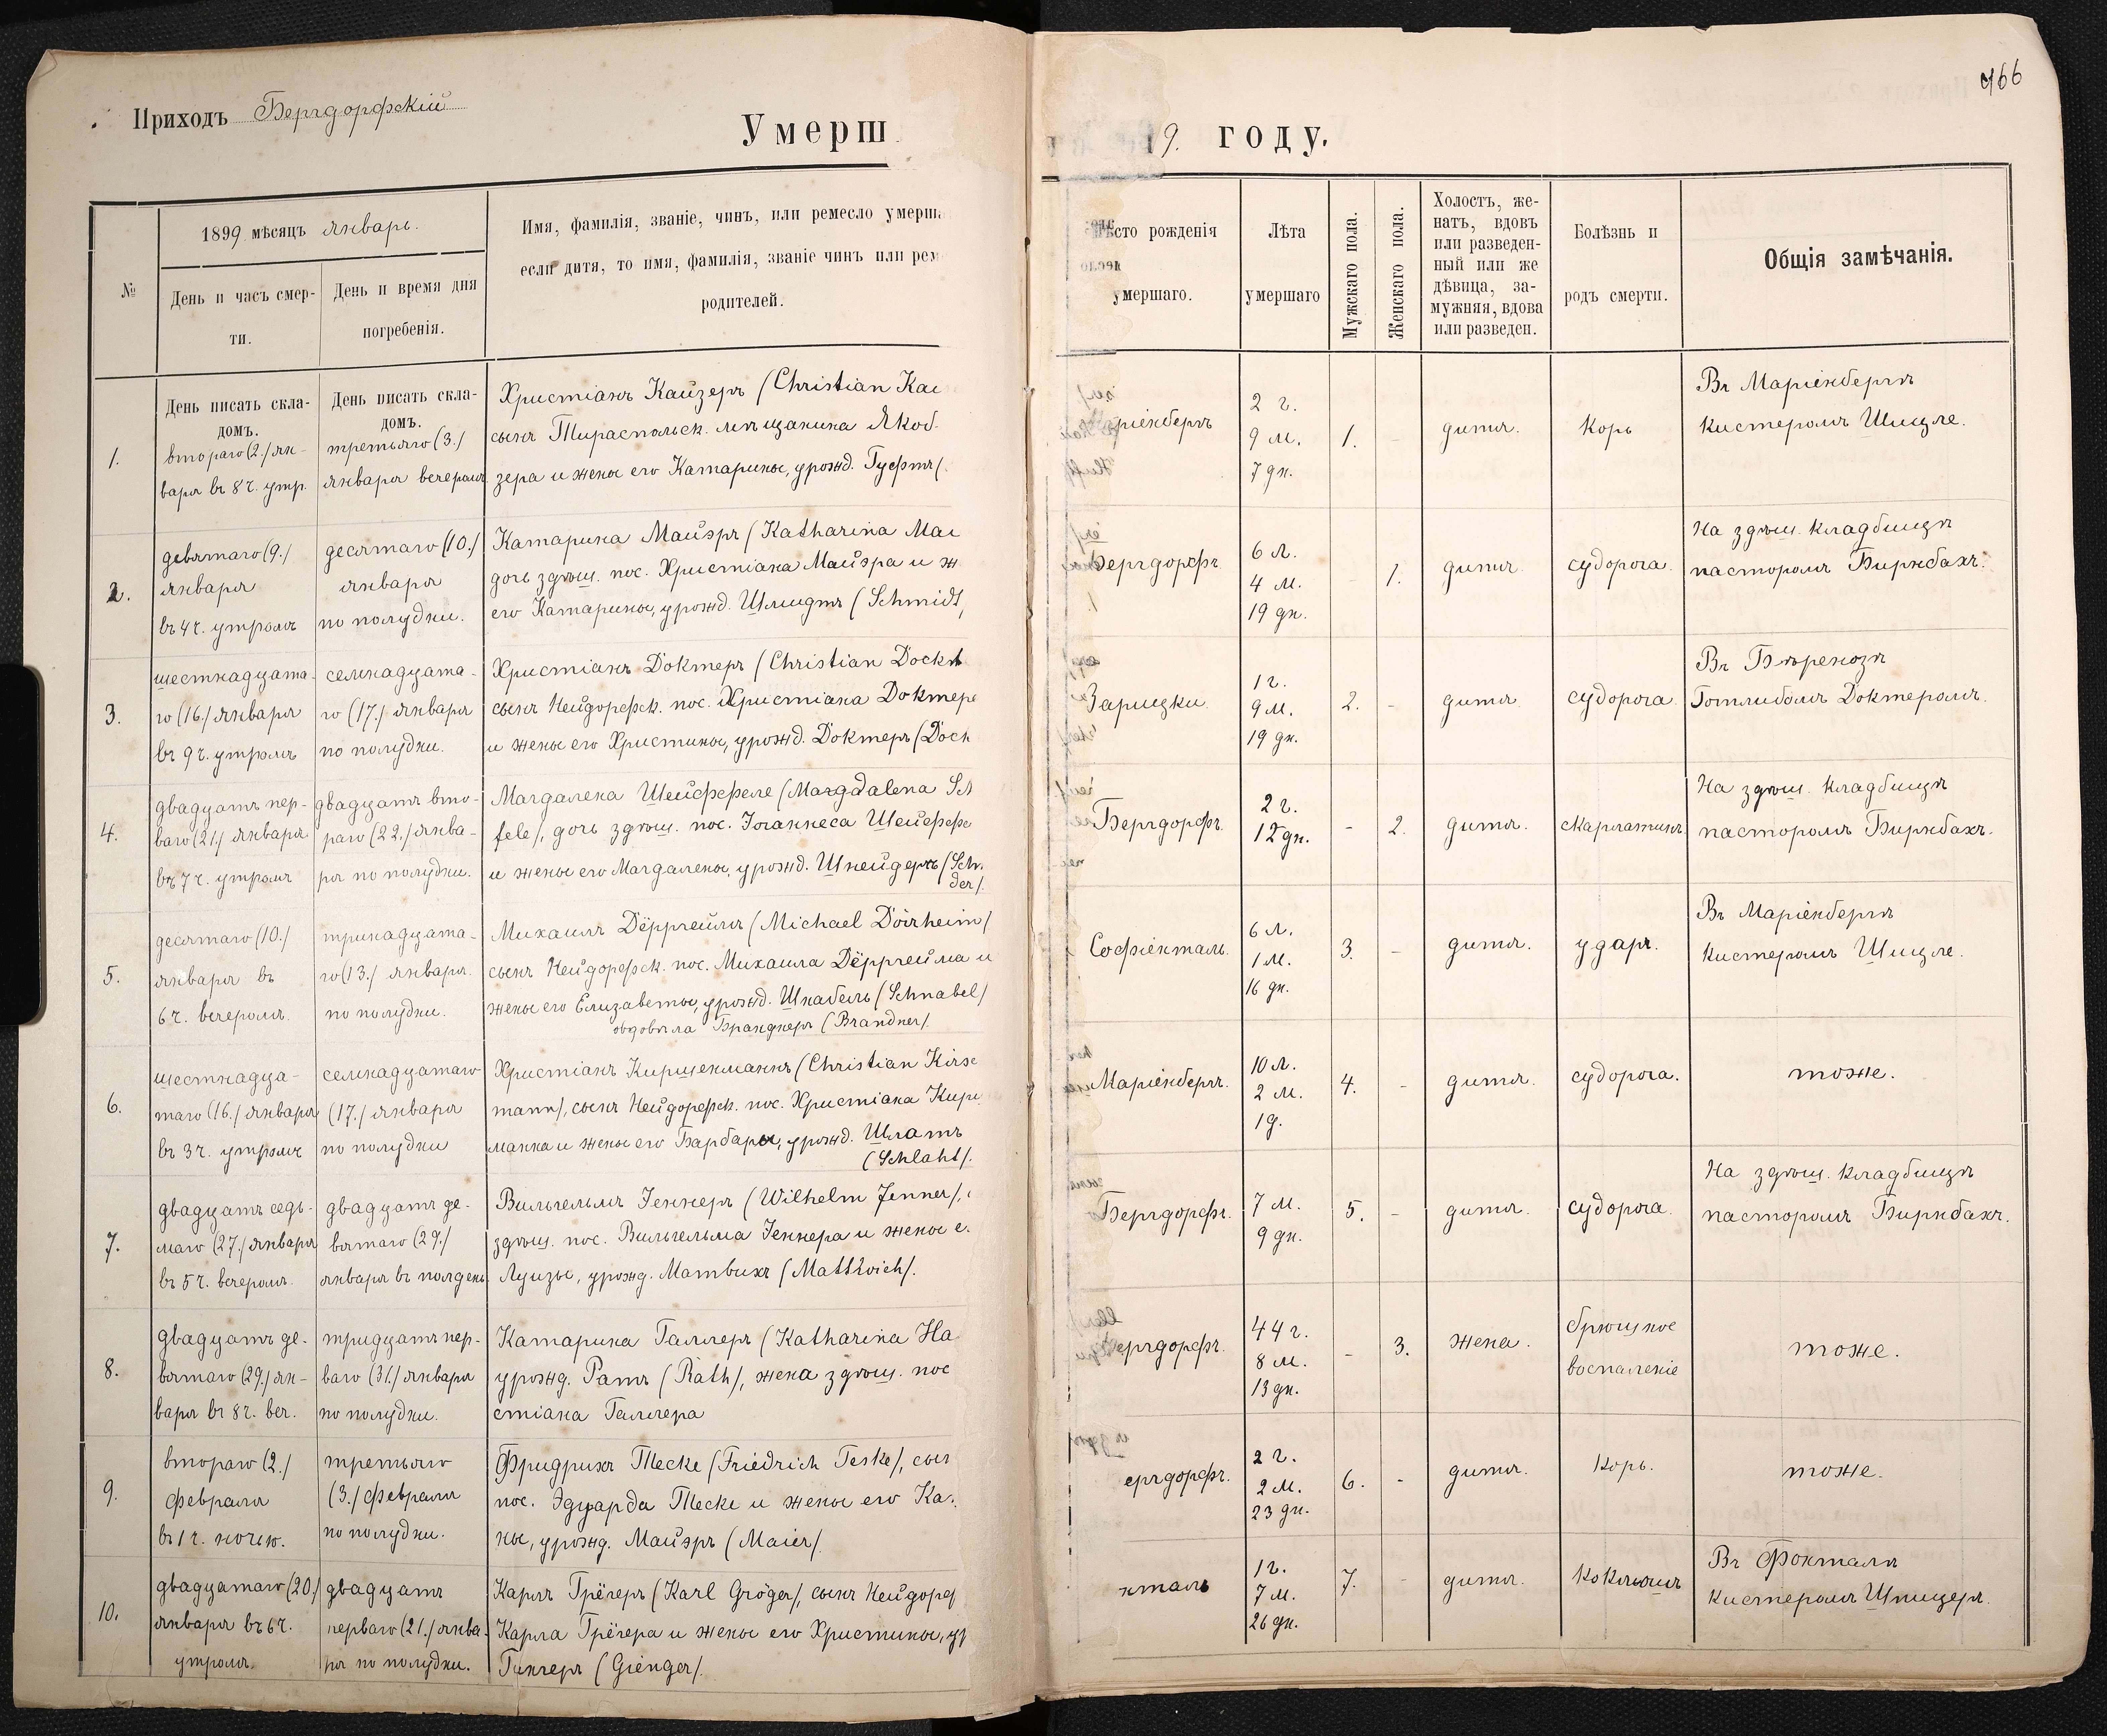 Приходъ Бергдорфскій
Умерш
9. году.
466
№
1899 мѣсяцъ январь.
День и часъ смер-
ти.
День и время дня
погребенія.
Имя, фамилія, званіе, чинъ, или ремесло умерш
если дитя, то имя, фамилія, званіе чинъ или рем
родителей.
Мѣсто рожденія
умершаго.
Лѣта
умершаго
Мужскаго пола.
Женскаго пола.
Холостъ, же-
натъ, вдовъ
или разведен-
ный или же
дѣвица, за-
мужняя, вдова
или разведен.
Болѣзнь и
родъ смерти.
Общія замѣчанія.
1.
День писать скла-
домъ.
втораго (2./ ян-
варя въ 8 ч. утр.
День писать скла-
домъ.
третьяго (3./
января вечеромъ
Христіанъ Кайзеръ (Christian Kai
сынъ Тираспольск. мѣщанина Якоб.
зера и жены его Катарины, урожд. Густтъ/.
ріенбергъ
2 г.
9 м.
7 дн.
1.
-
дитя.
корь
Въ Маріенбергѣ
кистеромъ Шицле.
2.
девятаго (9./
января
въ 4 ч. утромъ
десятаго (10./
января
по полудни.
Катарина Майэръ (Katharina Mai
дочь здѣш. пос. Христіана Майэра и ж
его Катарины, урожд. Шмидтъ (Schmidt,
Бергдорфъ
6 л.
4 м.
19 дн.
-
1.
дитя
судорога.
На здѣш. кладбищѣ
пасторомъ Бирнбахъ.
3.
шестнадцата-
го (16./ января
въ 9 ч. утромъ
семнадцата-
го (17./ января
по полудни.
Христіанъ Докторъ (Christian Dockt
сынъ Нейдорфск. пос. Христіана Доктера
и жены его Христины, урожд. Доктеръ (Doch
Зарицки.
1 г.
9 м.
19 дн.
2.
-
дитя
судорога.
Въ Бѣренозѣ
Готлибомъ Доктеромъ.
4.
двадцать пер-
ваго (21./ января
въ 7 ч. утромъ
двадцать вто-
раго (22./ янва-
ря по полудни.
Магдалена Шейффеле (Magdalena Sch
fele/, дочь здѣш. пос. Іоганнеса Шейффе
и жены его Магдалены, урожд. Шнейдеръ (Sch.
der/.
Бергдорфъ.
2 г.
12 дн.
-
2.
дитя.
скарлатинъ
На здѣш. кладбищѣ
пасторомъ Бирнбахъ.
5.
десятаго (10./
января въ
6 ч. вечеромъ.
тринадцата-
го (13./ января.
по полудни.
Михаилъ Дёрргеймъ (Michael Dörrheim/
сынъ Нейдорфск. пос. Михаила Дёрргейма и
жены его Елизаветы, урожд. Шнабель (Schnabel/
овдовѣла Бранднеръ (Brandner/.
Софіенталь.
6 л.
1 м.
16 дн.
3.
-
дитя.
ударъ.
Въ Маріенбергѣ
кистеромъ Шицле.
6.
шестнадца-
таго (16./ января
въ 3 ч. утромъ
семнадцатаго
(17./ января
по полудни
Христіанъ Киршенманнъ (Christian Kirsc
mann/, сынъ Нейдорфск. пос. Христіана Кирш
манна и жены его Барбары, урожд. Шлатъ
(Schlaht/.
Маріенбергъ.
10 л.
2 м.
1 д.
4.
-
дитя.
судорога.
тоже.
7.
двадцать седь-
маго (27./ января
въ 5 ч. вечеромъ.
двадцать де-
вятаго (29./
января въ полдень
Вильгельмъ Іеннеръ (Wilhelm Jenner/,
здѣш. пос. Вильгельма Іеннера и жены е.
Луизы, урожд. Матвихъ (Mattwich/.
Бергдорфъ.
7 м.
9 дн.
5.
-
дитя.
судорога.
На здѣш. кладбищѣ
пасторомъ Бирнбахъ.
8.
двадцать де-
вятаго (29./ ян-
варя въ 8 ч. веч.
тридцать пер-
ваго (31./ января
по полудни.
Катарина Галлеръ (Katharina Ha
урожд. Ратъ (Rath/, жена здѣш. пос
стіана Галлера
ергдорфъ.
44 г.
8 м.
13 дн.
-
3.
жена.
брюшное
воспаленіе
тоже.
9.
втораго (2./
февраля
въ 1 ч. ночью.
третьяго
(3./ февраля
по полудни.
Фридрихъ Теске (Friedrich Teske/, сын
пос. Эдуарда Теске и жены его Ка.
ны, урожд. Майэръ (Maier/.
ергдорфъ.
2 г.
2 м.
23 дн.
6.
-
дитя.
корь.
тоже.
10.
двадцатаго (20./
января въ 6 ч.
утромъ.
двадцать
перваго (21./ янва-
ря по полудни.
Карлъ Грёгеръ (Karl Gröger/, сынъ Нейдорф
Карла Грёгера и жены его Христины, ур
Гингеръ (Gienger/.
нталь
1 г.
7 м.
26 дн.
7.
-
дитя.
коклюшъ
Въ Фокталѣ
кистеромъ Шпицеръ.